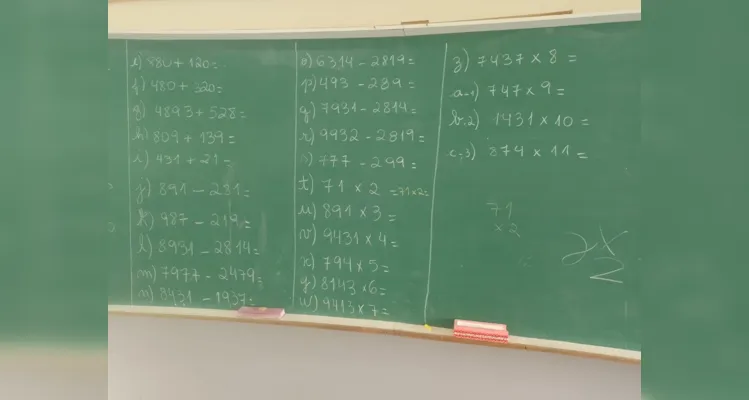 e) 480 + 120=
f) 480 + 320=
g) 4893 + 528=
h) 809 + 139=
i) 431 + 21 =
j) 891 - 231=
k) 987 - 219=
l) 8931 - 2814=
m) 7977 - 2479=
n) 8431 - 1937=
o) 6314 - 2819=
p) 493 - 239=
q) 7931 - 2814=
r) 9932 - 2819=
s) 777 - 299=
t) 71 × 2 =71×2=
u) 891 × 3 =
v) 9431 × 4=
x) 794 × 5=
y) 8143 ×6=
w) 9413 × 7=
z) 7437 × 8 =
a-1) 747 × 9=
b.2) 1431 × 10 =
c-3) 874 × 11 =
71
×2
2X
2